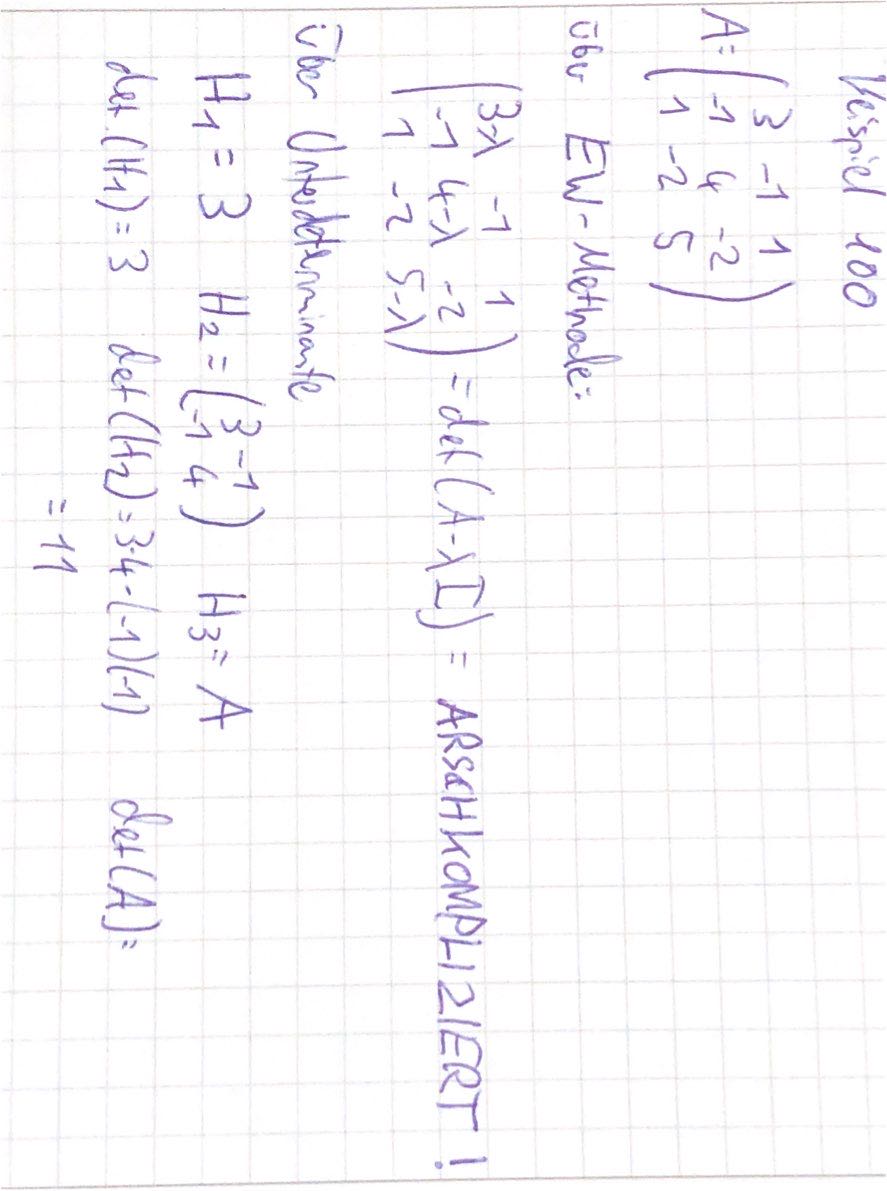 Beispiel 100
A= ( 3 -1 1
-1 4 -2
1 -2 5 )
über EW-Methode:
( 3-λ -1 1
-1 4-λ -2
1 -2 5-λ ) = det (A-λI) = ARSCHKOMPLIZIERT !
über Unterdeterminante
H₁ = 3 H₂ = ( 3 -1
-1 4 ) H₃ = A
det (H₁) = 3 det (H₂) = 3·4-(-1)(-1) det (A) =
= 11